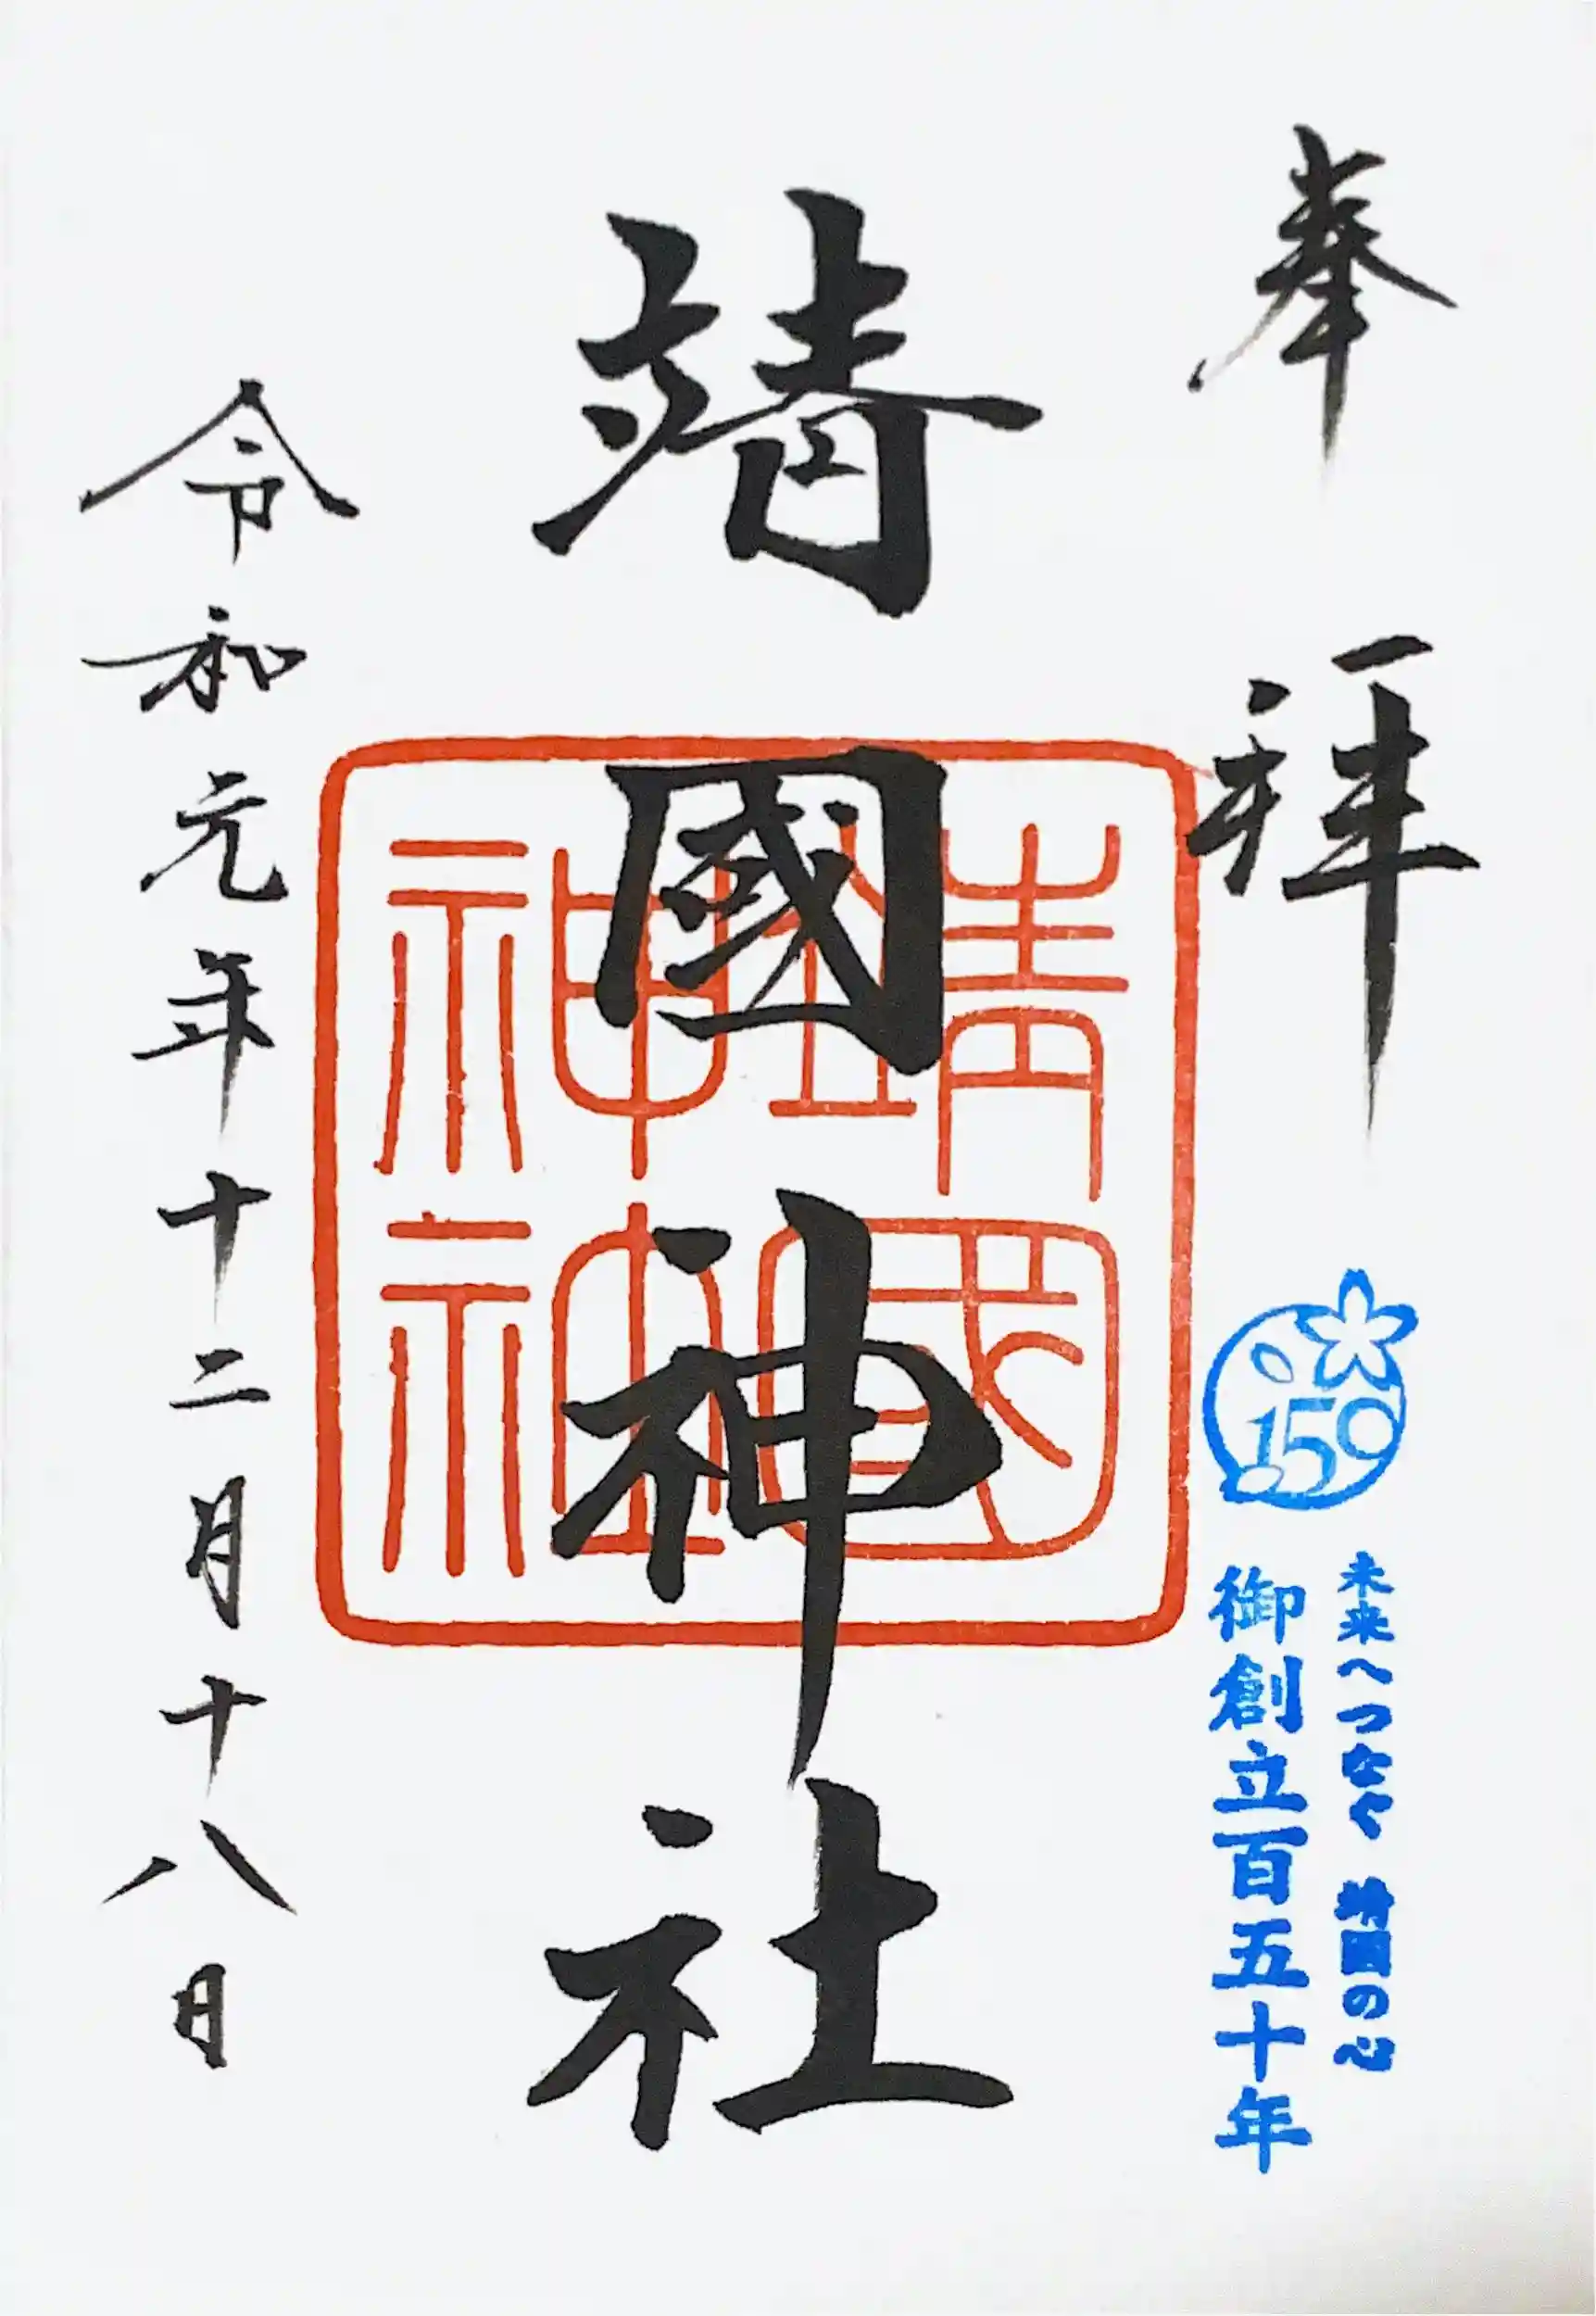 奉拝
150
未来へつなぐ 靖國の心
御創立百五十年
靖國神社
靖國
神社
令和元年十二月十八日